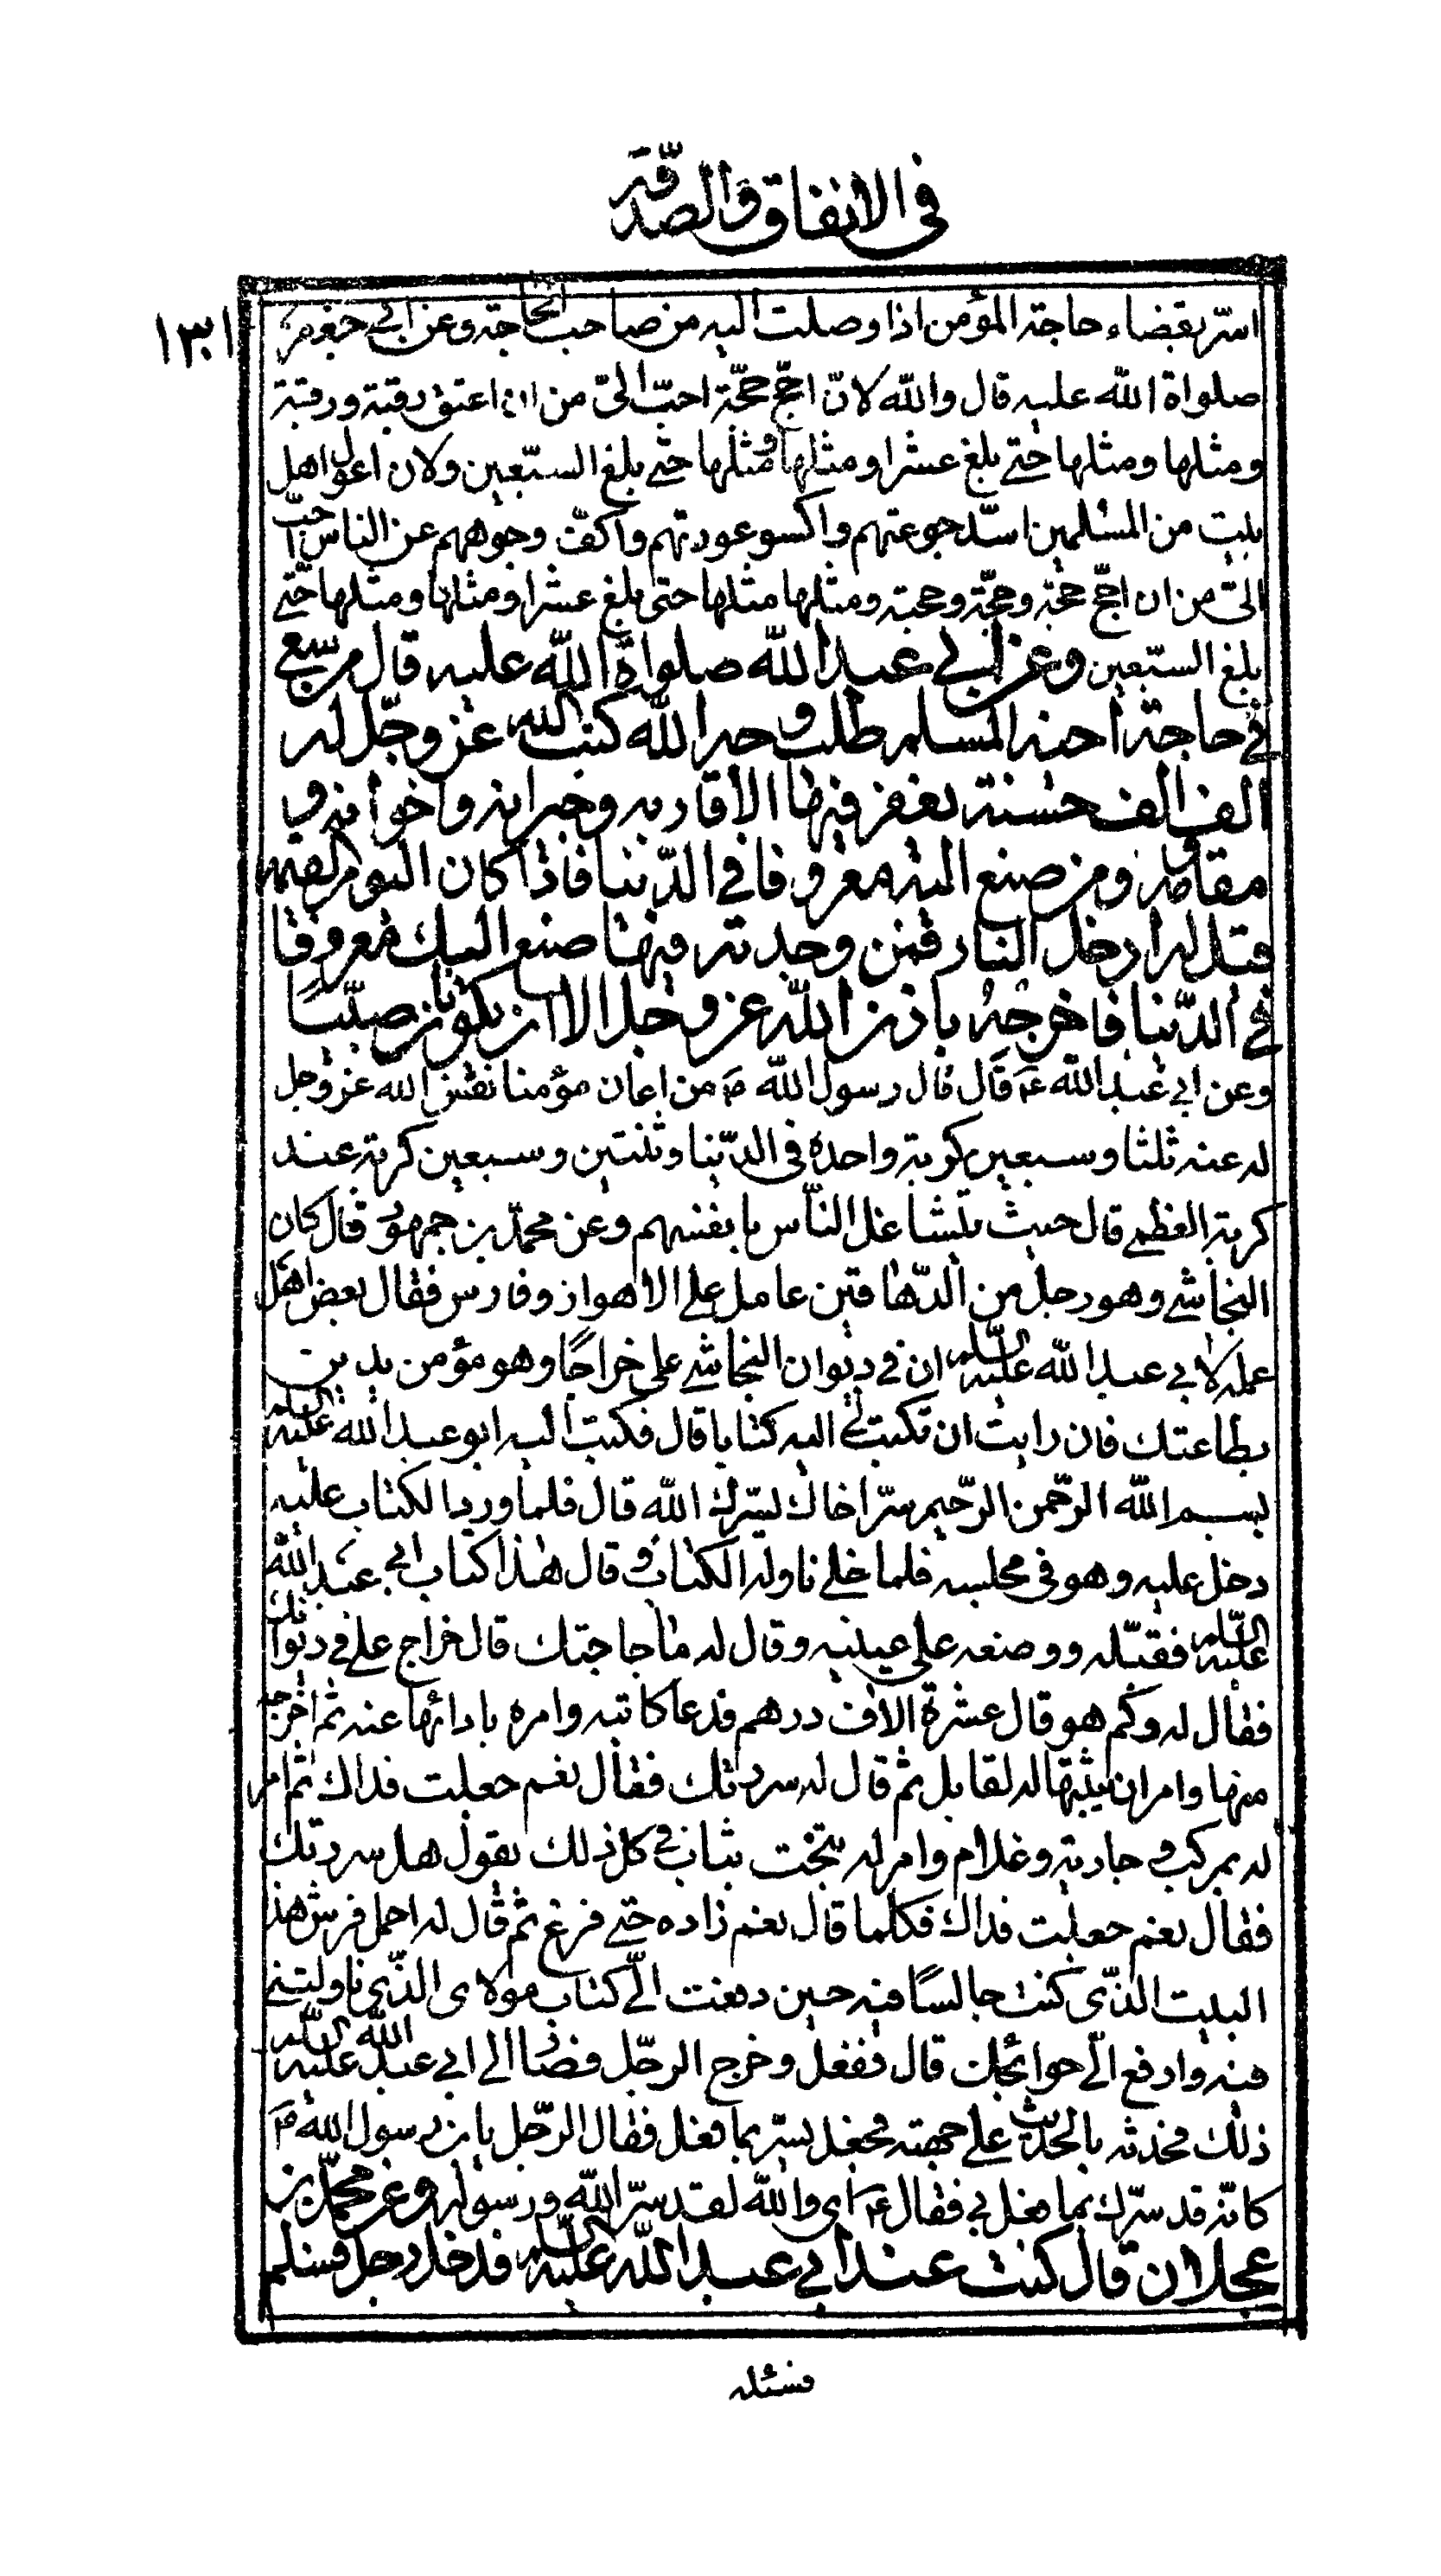 في الانفاق والصدقة
١٣١
اسرّ بقضاء حاجة المؤمن اذا وصلت اليه من صاحب الحاجة وعن ابي جعفر
صلواة الله عليه قال والله لانّ احجّ حجّة احبّ اليّ من ان اعتق رقبة ورقبة
ومثلها ومثلها حتى بلغ عشرا ومثلها ومثلها حتى بلغ السبّعين ولان اعول اهل
بيت من المسلمين اسدّ جوعتهم واكسو عورتهم واكفّ وجوههم عن الناس احبّ
اليّ من ان احجّ حجّة وحجّة وحجة ومثلها مثلها حتى بلغ عشرا ومثلها ومثلها حتّى
بلغ السبّعين وعن ابي عبد الله صلواة الله عليه قال من سعى
في حاجة اخيه المسلم طلب وجه الله كتب الله عز وجّل له
الف الف حسنة يغفر فيها الاقاربه وجيرانه واخوانه و
معارفه ومن صنع اليه معروفا في الدّنيا فاذا كان اليوم القيمة
قيل له ادخل النار فمن وجدته فيها صنع اليك معروفا
في الدّنيا فاخرجه باذن الله عز وجل الا ان يكون ناصبّيا
وعن ابي عبد الله ع قال قال رسول الله ص من اعان مؤمنا نفّس الله عز وجل
له عنه ثلثا وسبعين كربة واحدة في الدّنيا وثنتين وسبعين كربة عند
كربة العظمى قال حيث يتشاغل النّاس بانفسهم وعن محمّد بن جمهور قال كان
النجاشي وهو رجل من الدّهاقين عامل على الاهواز وفارس فقال بعض اهل
عمله لابي عبد الله عليه السّلم ان في ديوان النجاشي على خراجًا وهو مؤمن يدين
بطاعتك فان رايت ان تكتب لي اليه كتابا قال فكتب اليه ابو عبد الله عليه السلم
بسم الله الرّحمن الرّحيم سرّ اخاك يسّرك الله قال فلما ورد الكتاب عليه
دخل عليه وهو في مجلسه فلما خلى ناوله الكتاب و قال هذا كتاب ابي عبد الله
عليه السّلم فقبّله ووضعه على عينيه وقال له ما حاجتك قال خراج على في ديوانك
فقال له وكم هو قال عشرة الاف درهم فدعا كاتبه وامره بادائها عنه ثم اخرجه
منها وامر ان يثبتها له لقابل ثم قال له سررتك فقال نعم جعلت فداك ثم امر
له بمركب و جارية وغلام وامر له بتخت ثياب في كل ذلك يقول هل سررتك
فقال نعم جعلت فداك فكلما قال نعم زاده حتى فرغ ثم قال له احمل فرش هذا
البيت الذّي كنت جالسًا فيه حين دفعت الّى كتاب مولاي الذّي ناولتني
فيه وارفع الّى حوائجك قال ففعل وخرج الرجّل فصار الى ابي عبد الله عليه السلم
ذلك فحدثه بالحديث على جهته فجعل يسّر بما فعل فقال الرّجل يابن رسول الله ص
كانّه قد سرّك بما فعل بي فقال ع اي والله لقد سرّ الله ورسوله وعن محمّد بن
عجلان قال كنت عند ابي عبد الله عليه السلم فدخل رجل فسلم
فسئله